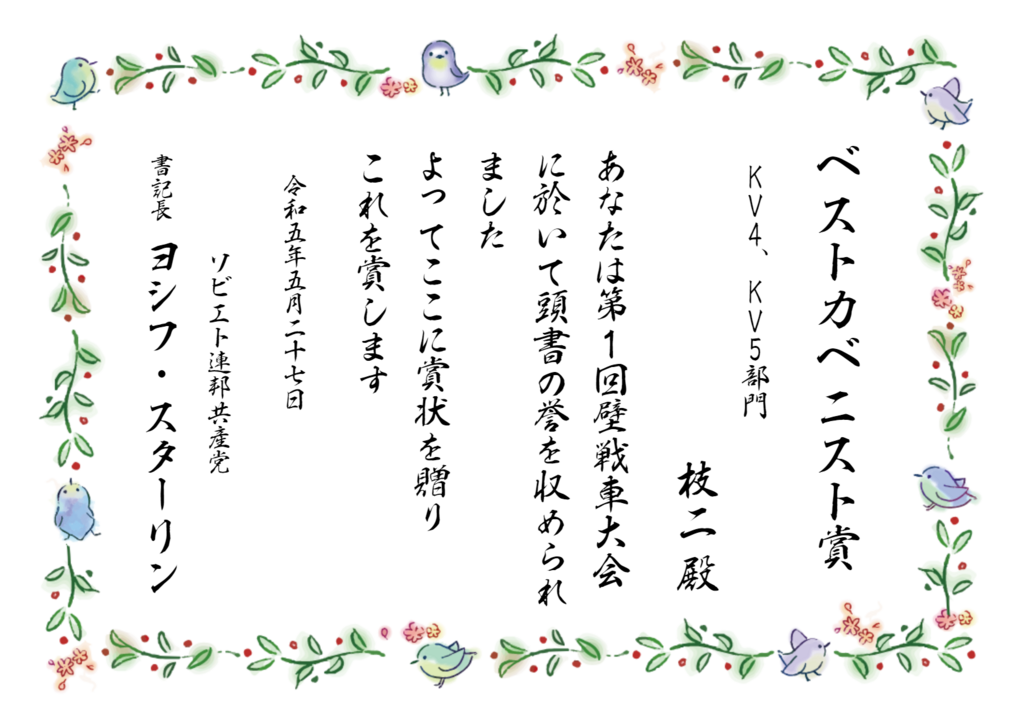 ベストカベニスト賞
KV4、KV5部門
枝二殿
あなたは第1回壁戦車大会
に於いて頭書の誉を収められ
ました
よってここに賞状を贈り
これを賞します
令和五年五月二十七日
ソビエト連邦共産党
書記長 ヨシフ・スターリン